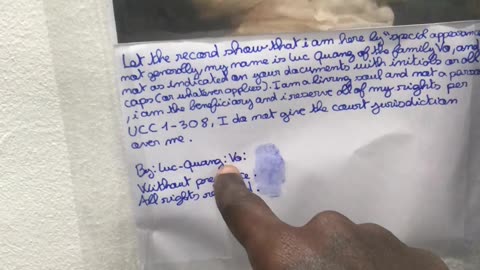 Let the record show that i am here by "special appearance
not generally, my name is Luc Quang of the family Vo, and
not as indicated on your documents with initials or all
caps (or whatever applies). I am a living soul and not a perso
, i am the beneficiary and i reserve all of my rights per
UCC 1-308, I do not give the court jurisdiction
over me.
By: Luc-Quang: Vo:
Without
All rights